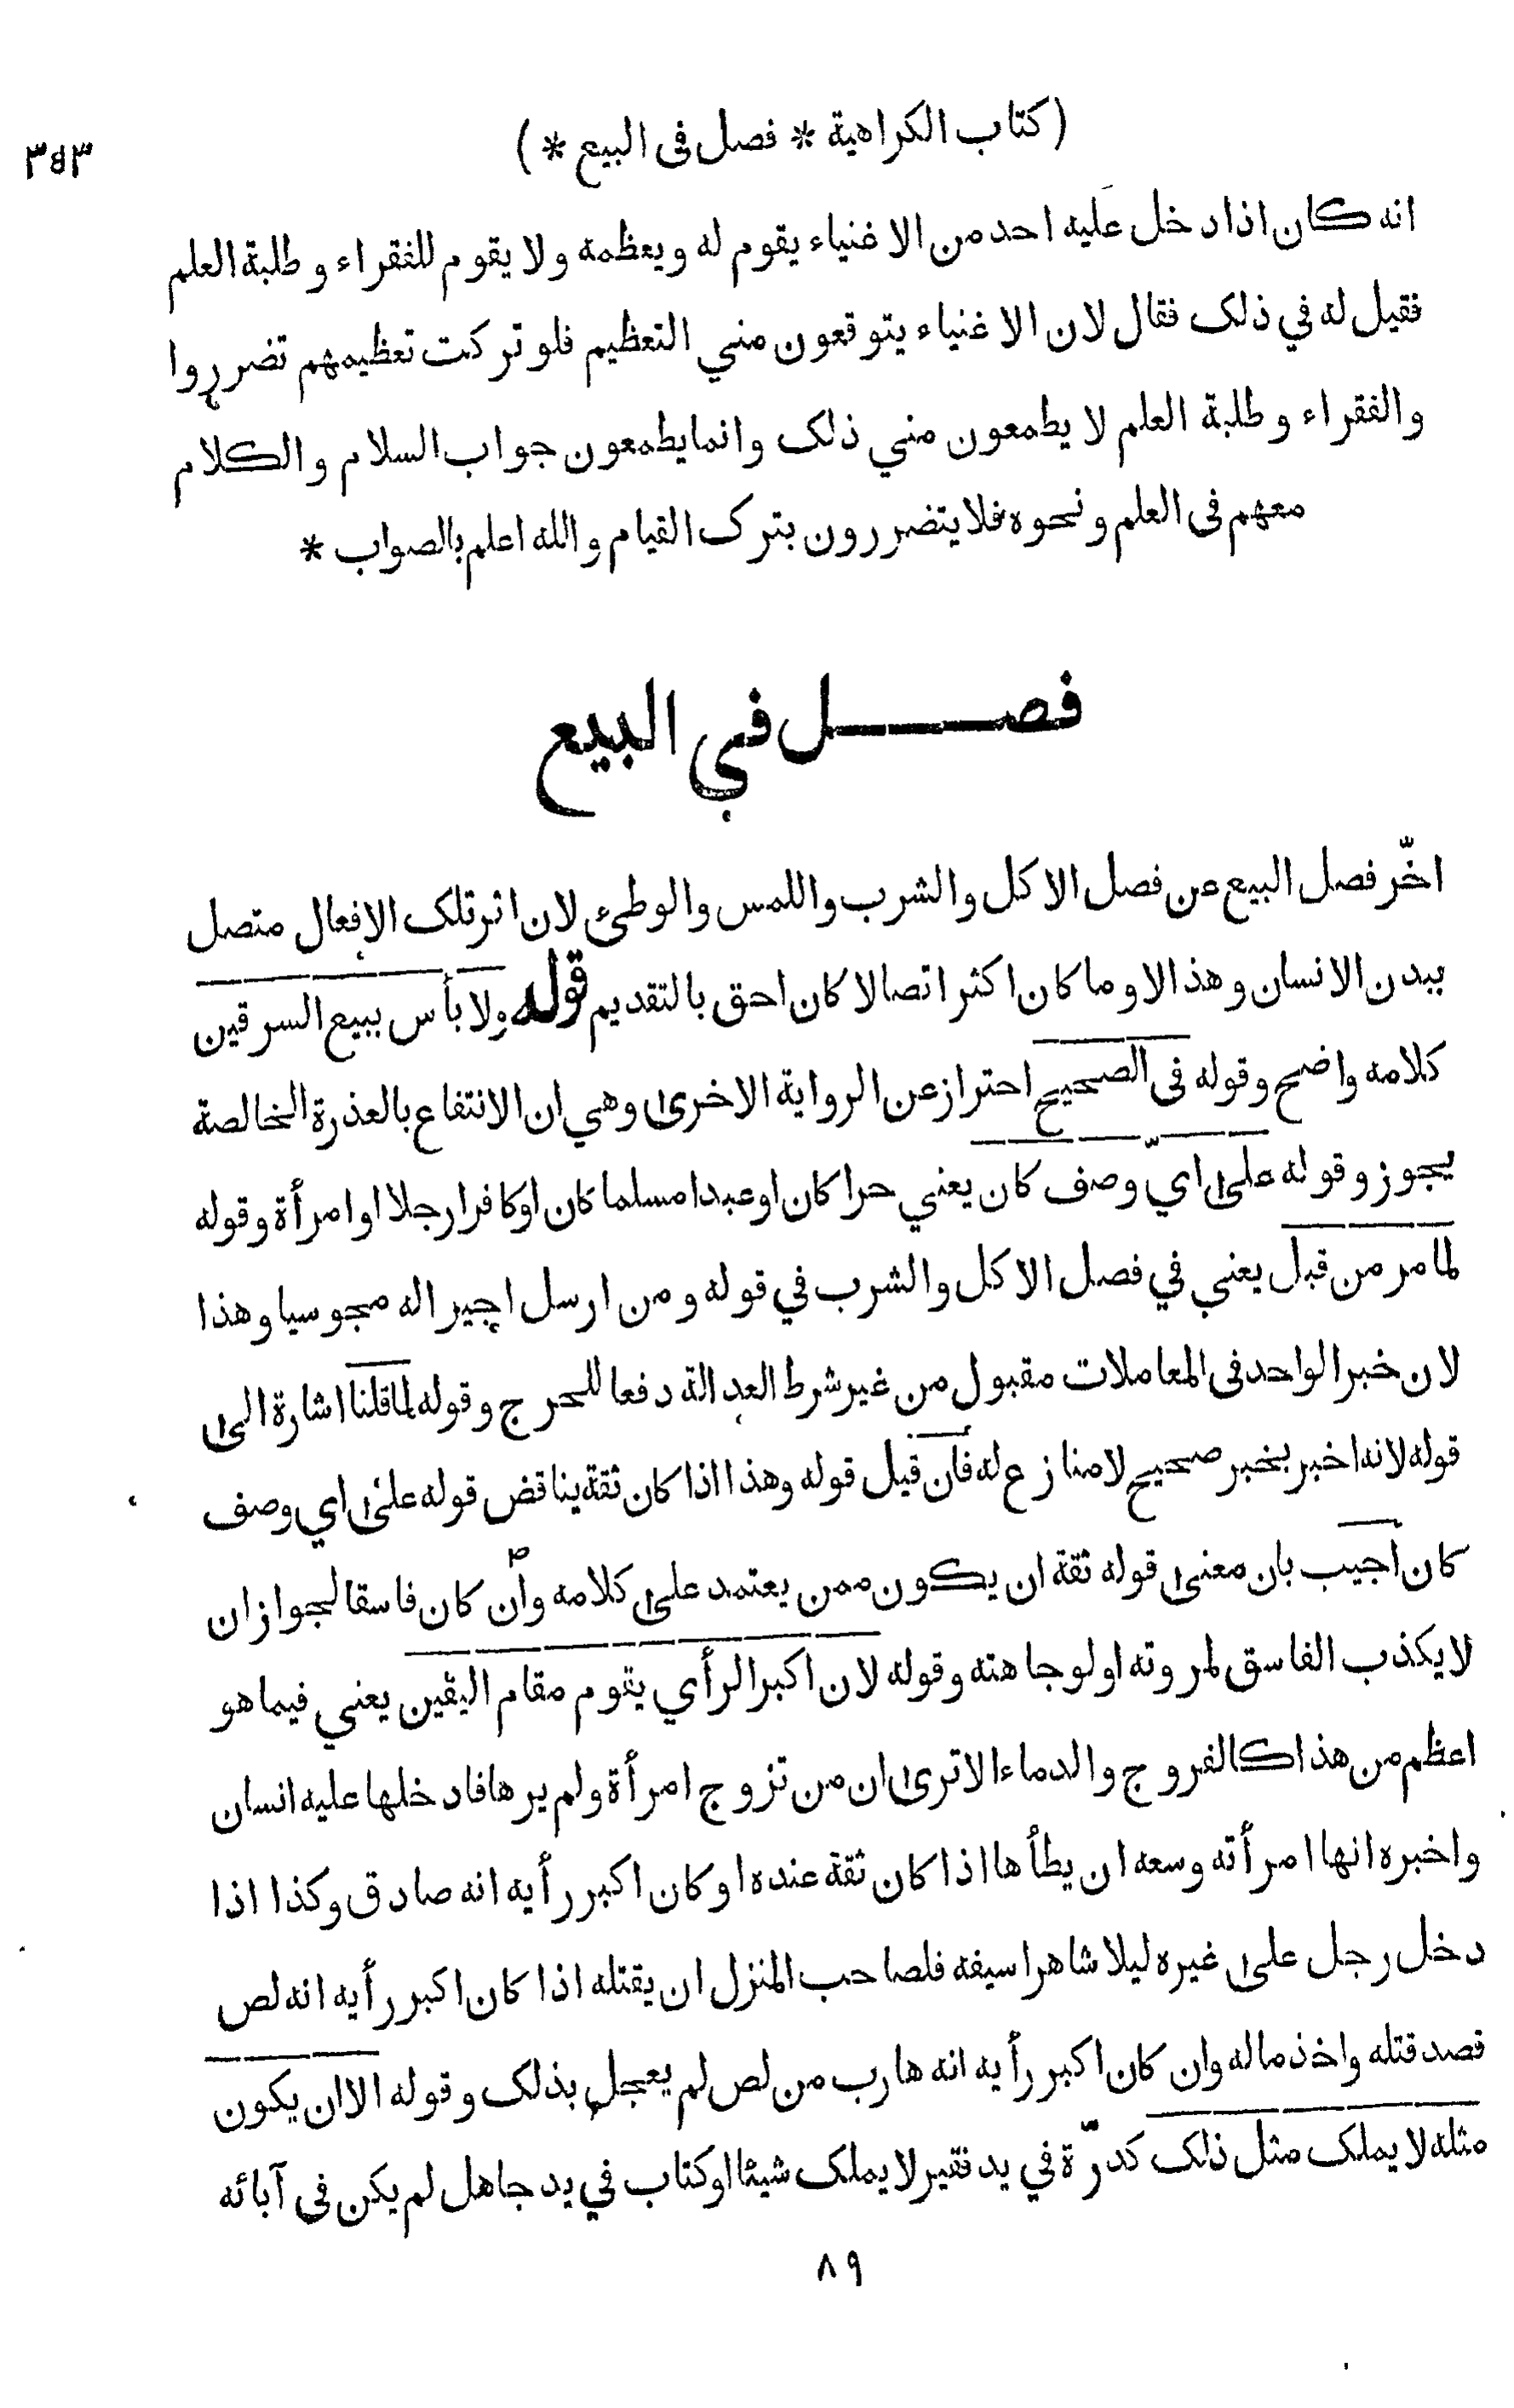 (كتاب الكراهية * فصل فى البيع *)
٣٤٣
انه كان اذا دخل عليه احد من الاغنياء يقوم له ويعظمه ولا يقوم للفقراء وطلبة العلم
فقيل له في ذلك فقال لان الاغنياء يتوقعون مني التعظيم فلو تركت تعظيمهم تضرروا
والفقراء وطلبة العلم لا يطمعون مني ذلك وانما يطمعون جواب السلام والكلام
معهم فى العلم ونحوه فلا يتضررون بترك القيام والله اعلم بالصواب *
فصل في البيع
اخّر فصل البيع عن فصل الاكل والشرب واللمس والوطئ لان اثر تلك الافعال متصل
ببدن الانسان وهذا لا وما كان اكثر اتصالا كان احق بالتقديم قوله ولا بأس ببيع السرقين
كلامه واضح وقوله فى الصحيح احتراز عن الرواية الاخرى وهي ان الانتفاع بالعذرة الخالصة
يجوز وقوله على ايّ وصف كان يعني حرا كان او عبدا مسلما كان او كافرا رجلا او امرأة وقوله
لما مر من قبل يعني في فصل الاكل والشرب في قوله ومن ارسل اجيرا له مجوسيا وهذا
لان خبر الواحد فى المعاملات مقبول من غير شرط العدالة دفعا للحرج وقوله لما قلنا اشارة الى
قوله لانه اخبر بخبر صحيح لا منازع له فان قيل قوله وهذا اذا كان ثقة يناقض قوله على اي وصف
كان اجيب بان معنى قوله ثقة ان يكون ممن يعتمد على كلامه وان كان فاسقا لجواز ان
لا يكذب الفاسق لمروته او لوجاهته وقوله لان اكبر الرأي يقوم مقام اليقين يعني فيما هو
اعظم من هذا كالفروج والدماء الا ترى ان من تزوج امرأة ولم يرها فادخلها عليه انسان
واخبره انها امرأته وسعه ان يطأها اذا كان ثقة عنده او كان اكبر رأيه انه صادق وكذا اذا
دخل رجل على غيره ليلا شاهرا سيفه فلصاحب المنزل ان يقتله اذا كان اكبر رأيه انه لص
قصد قتله واخذ ماله وان كان اكبر رأيه انه هارب من لص لم يعجل بذلك وقوله الا ان يكون
مثله لا يملك مثل ذلك كدرّة في يد فقير لا يملك شيئا او كتاب في يد جاهل لم يكن فى آبائه
٨٩